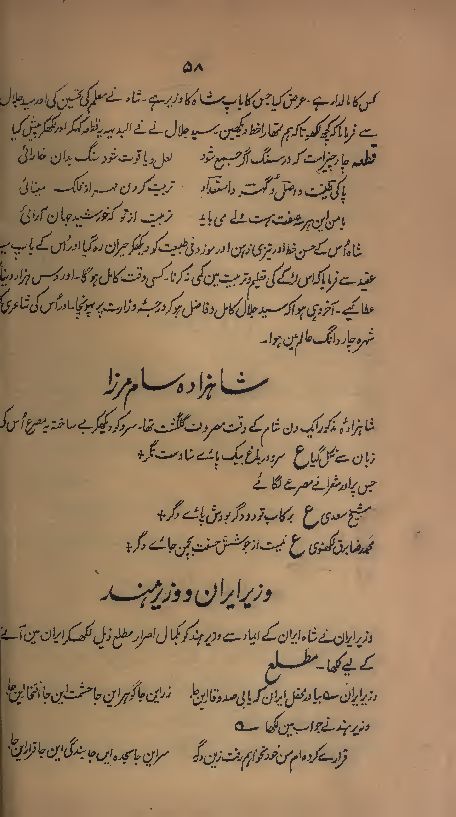 ۵۸
کس کا مالدار ہے ۔ عرض کیا جس کا باپ شاہ کا وزیر ہے ۔ شاہ نے معلم کی تحسین کی اور سید جلال
سے فرمایا کہ کچھ لکھو تاکہ ہم تمہارا خط دیکھیں سید جلال نے فی البدیہہ یہ قطعہ کہکر اور لکھکر پیش کیا
قطعہ چار چیز است کہ در سنگ اگر جمع شود لعل و یاقوت شود سنگ بدان خارائی
پاکی طینت و اصل و گہر و استعداد تربیت کردن مہر از فلک مینائی
با من این ہر سہ صفت ہست ولے می باید تربیت از تو کہ خورشید جہان آرائی
شاہ اُس کے حسن خط اور تیزی ذہن اور موزونی طبیعت کو دیکھکر حیران رہ گیا اور اُس کے باپ سے
سے فرمایا کہ اس لڑکے کی تعلیم و تربیت مین کمی نہ کرنا ۔ کسی وقت کامل ہوگا ۔ اور دس ہزار دینار
عطا کیے ۔ آخر وہی ہوا کہ سید جلال کامل و فاضل ہو کر درجۂ وزارت پر پہونچا اور اُس کی شاعری کا
شہرہ چار دانگ عالم مین ہوا ۔
شاہزادہ سام مرزا
شاہزادۂ مذکور ایک دن شام کے وقت مصروف گلگشت تھا ۔ سرو کو دیکھکر بے ساختہ یہ مصرع اُس کی
زبان سے نکل گیا ع سرو در باغ بیک پائے ستادست نگر
جس پر اور شعرا نے مصرعے لگائے
شیخ سعدی ع برکاب تو دود گر بودش پائے دگر
محمد رضا برق لکھنوی ع نیست از جوشش حسنت بچمن جائے دگر
وزیر ایران و وزیر ہند
وزیر ایران نے شاہ ایران کے ایما سے وزیر ہند کو بکمال اصرار مطلع ذیل لکھکر ایران مین آنے
کے لیے لکھا ۔ مطلع
وزیر ایران بیا در محفل ایران کہ یابی صد وفا این جا زر این جا گوہر این جا حشمت این جا این جا
وزیر ہند نے جواب مین لکھا
قرارے کردہ ام من خود نخواہم رفت زین درگہ سر این جا سجدہ این جا بندگی این جا قرار این جا